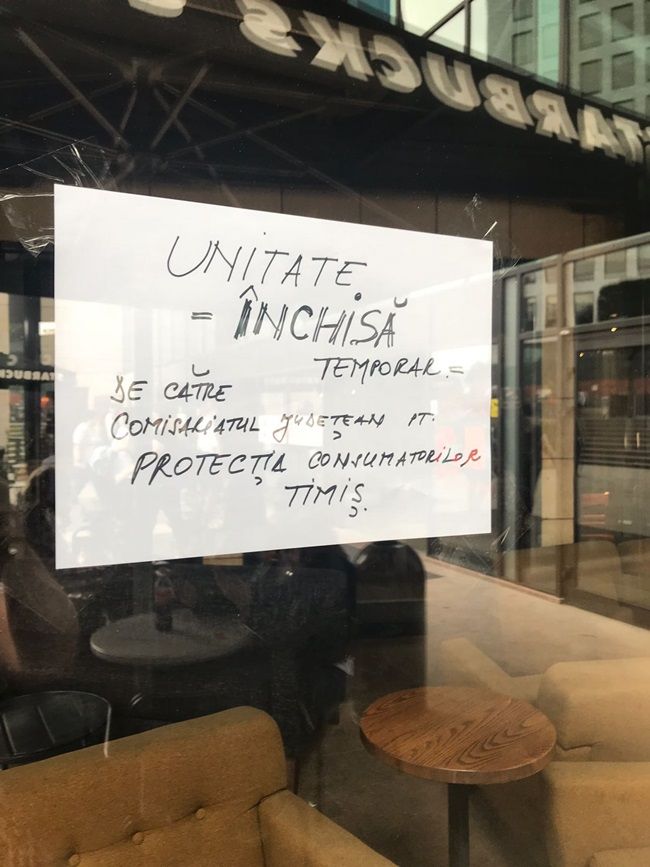 STARBUCKS
UNITATE
= ÎNCHISĂ
TEMPORAR =
DE CĂTRE
COMISARIATUL JUDEȚEAN PT.
PROTECȚIA CONSUMATORILOR
TIMIȘ.
STARBUCKS